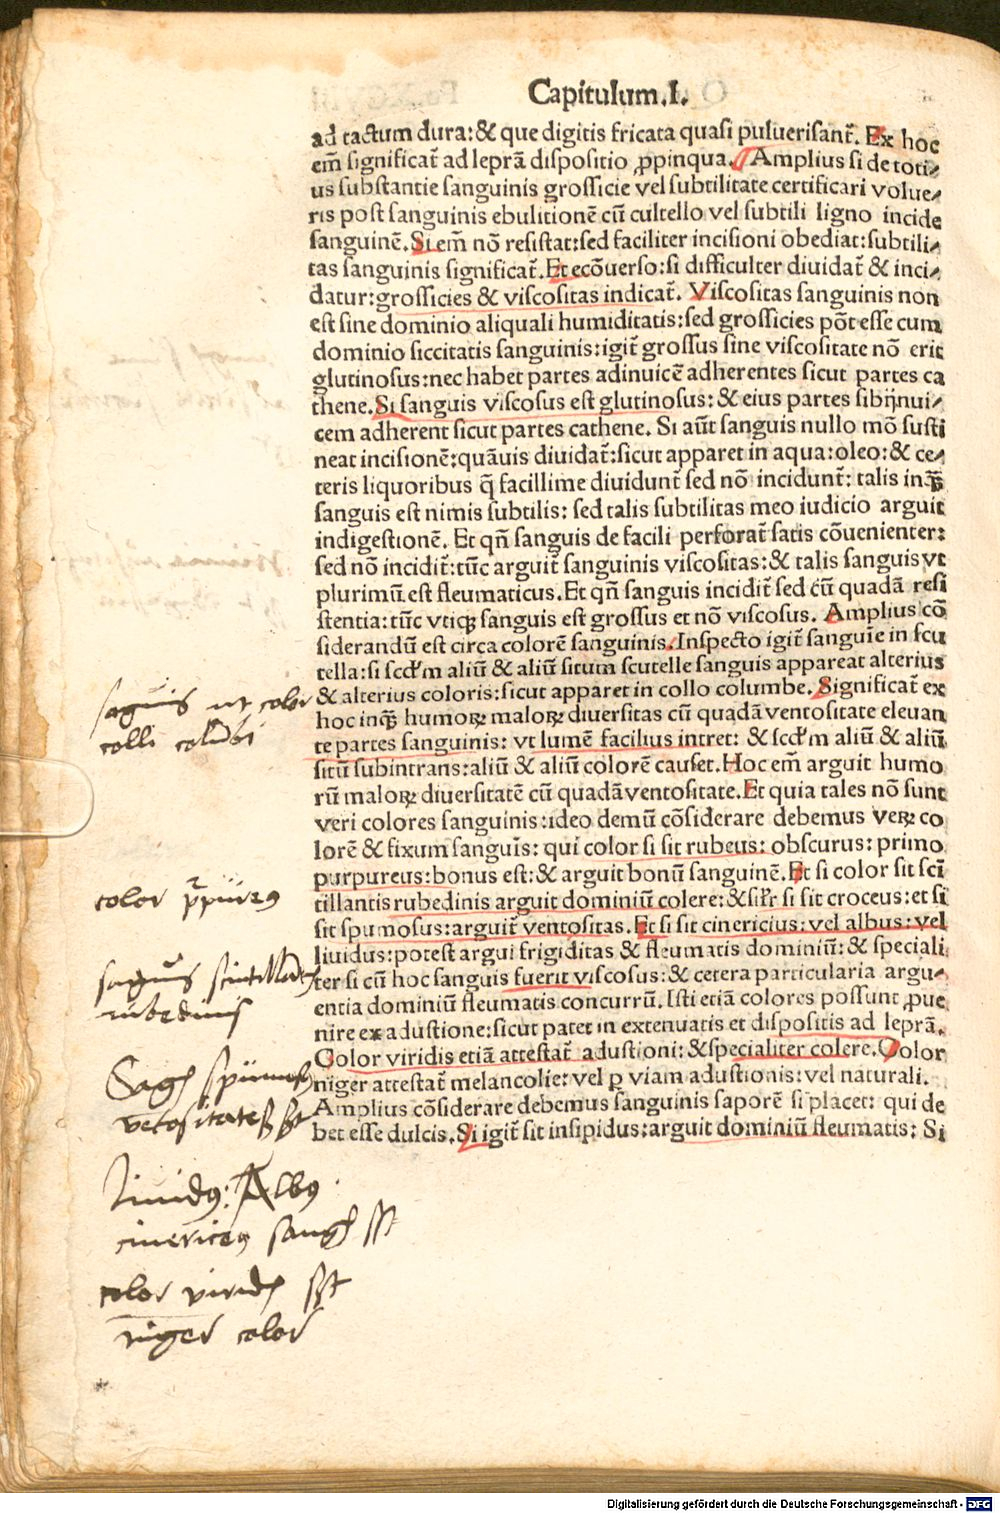 Capitulum.I.
ad tactum dura: & que digitis fricata quasi pulueriſant̄. Ex hoc
em̄ significat̄ ad leprā dispositio ꝓpinqua. Amplius si de toti⸗
us substantie sanguinis grossicie vel subtilitate certificari volue⸗
ris post sanguinis ebulitionē cū cultello vel subtili ligno incide
sanguinē. Si em̄ nō resistat: sed faciliter incisioni obediat: subtili⸗
tas sanguinis significat̄. Et ecōuerso: si difficulter diuidat̄ & inci⸗
datur: grossicies & viscositas indicat̄. Viscositas sanguinis non
est sine dominio aliquali humiditatis: sed grossicies pōt esse cum
dominio siccitatis sanguinis: igit̄ grossus sine viscositate nō erit
glutinosus: nec habet partes adinuicē adherentes sicut partes ca
thene. Si sanguis viscosus est glutinosus: & eius partes sibijnui⸗
cem adherent sicut partes cathene. Si aūt sanguis nullo mō susti
neat incisionē: quāuis diuidat̄: sicut apparet in aqua: oleo: & ce⸗
teris liquoribus q̄ facillime diuidunt̄ sed nō incidunt̄: talis inq̄ꝫ
sanguis est nimis subtilis: sed talis subtilitas meo iudicio arguit
indigestionē. Et qn̄ sanguis de facili perforat̄ satis cōuenienter:
sed nō incidit̄: tūc arguit̄ sanguinis viscositas: & talis sanguis vt
plurimū est fleumaticus. Et qn̄ sanguis incidit̄ sed cū quadā resi
stentia: tūc vtiqꝫ sanguis est grossus et nō viscosus. Amplius cō
siderandū est circa colorē sanguinis. Inspecto igit̄ sanguīe in scu
tella: si scd'm aliū & aliū situm scutelle sanguis appareat alterius
& alterius coloris: sicut apparet in collo columbe. Significat̄ ex
hoc inqꝫ humoꝝ maloꝝ diuersitas cū quadā ventositate eleuan
te partes sanguinis: vt lumē facilius intret: & scd'm aliū & aliū
sitū subintrans: aliū & aliū colorē causet. Hoc em̄ arguit humo
rū maloꝝ diuersitatē cū quadā ventositate. Et quia tales nō sunt
veri colores sanguinis: ideo demū cōsiderare debemus veꝝ co
lorē & fixum sanguīs: qui color si sit rubeus: obscurus: primo
purpureus: bonus est: & arguit bonū sanguinē. Et si color sit sci̅
tillantis rubedinis arguit dominiū colere: & sil'r si sit croceus: et si
sit spumosus: arguit̄ ventositas. Et si sit cinericius: vel albus: vel
liuidus: potest argui frigiditas & fleumatis dominiū: & speciali
ter si cū hoc sanguis fuerit viscosus: & cetera particularia argu⸗
entia dominiū fleumatis concurrū. Isti etiā colores possunt ꝓue
nire ex adustione: sicut patet in extenuatis et dispositis ad leprā.
Color viridis etiā attestat̄ adustioni: & specialiter colere. Color
niger attestat̄ melancolie: vel ꝑ viam adustionis: vel naturali.
Amplius cōsiderare debemus sanguinis saporē si placet: qui de
bet esse dulcis. Si igit̄ sit insipidus: arguit dominiū fleumatis: Si
sāguis ut color
colli colūbi
color p̄pureꝰ
sāguīs scintillātis
rubedinis
Sāgꝭ spūmosꝭ
vētositatē
Liuidꝰ: Albꝰ
cinericeꝰ sangꝭ
color viridꝭ
niger color
Digitalisierung gefördert durch die Deutsche Forschungsgemeinschaft - DFG